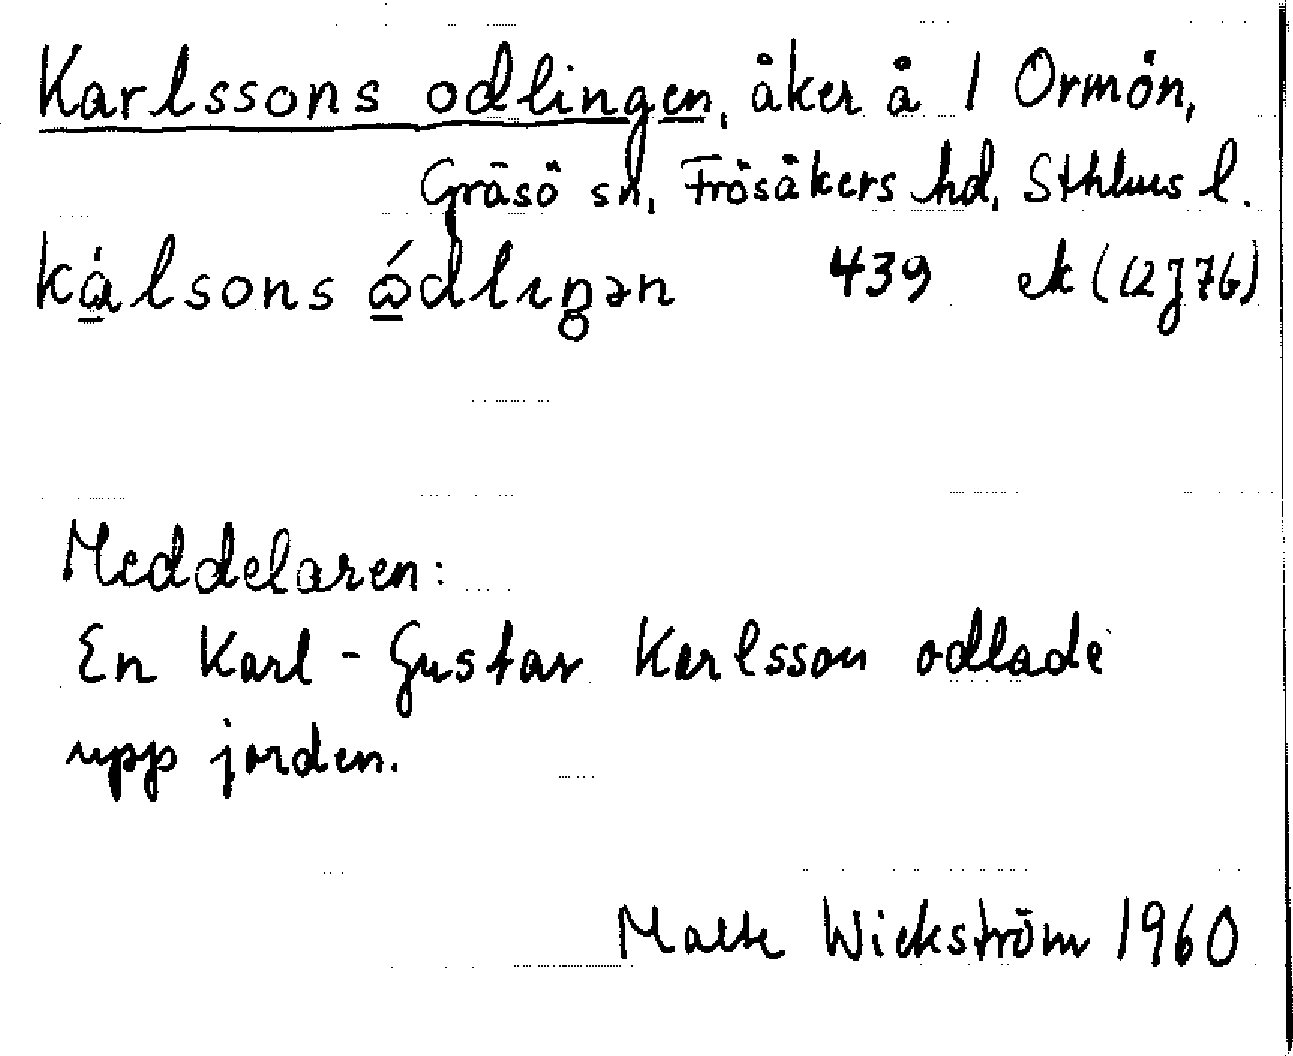 Karlssons odlingen, åker å 1 Ormön,
Gräsö sn, Frösåkers hd, Sthlms l.
kálsons ódlıŋən 439 ek (12J76)
Meddelaren:
En Karl-Gustav Karlsson odlade
upp jorden.
Malte Wickström 1960